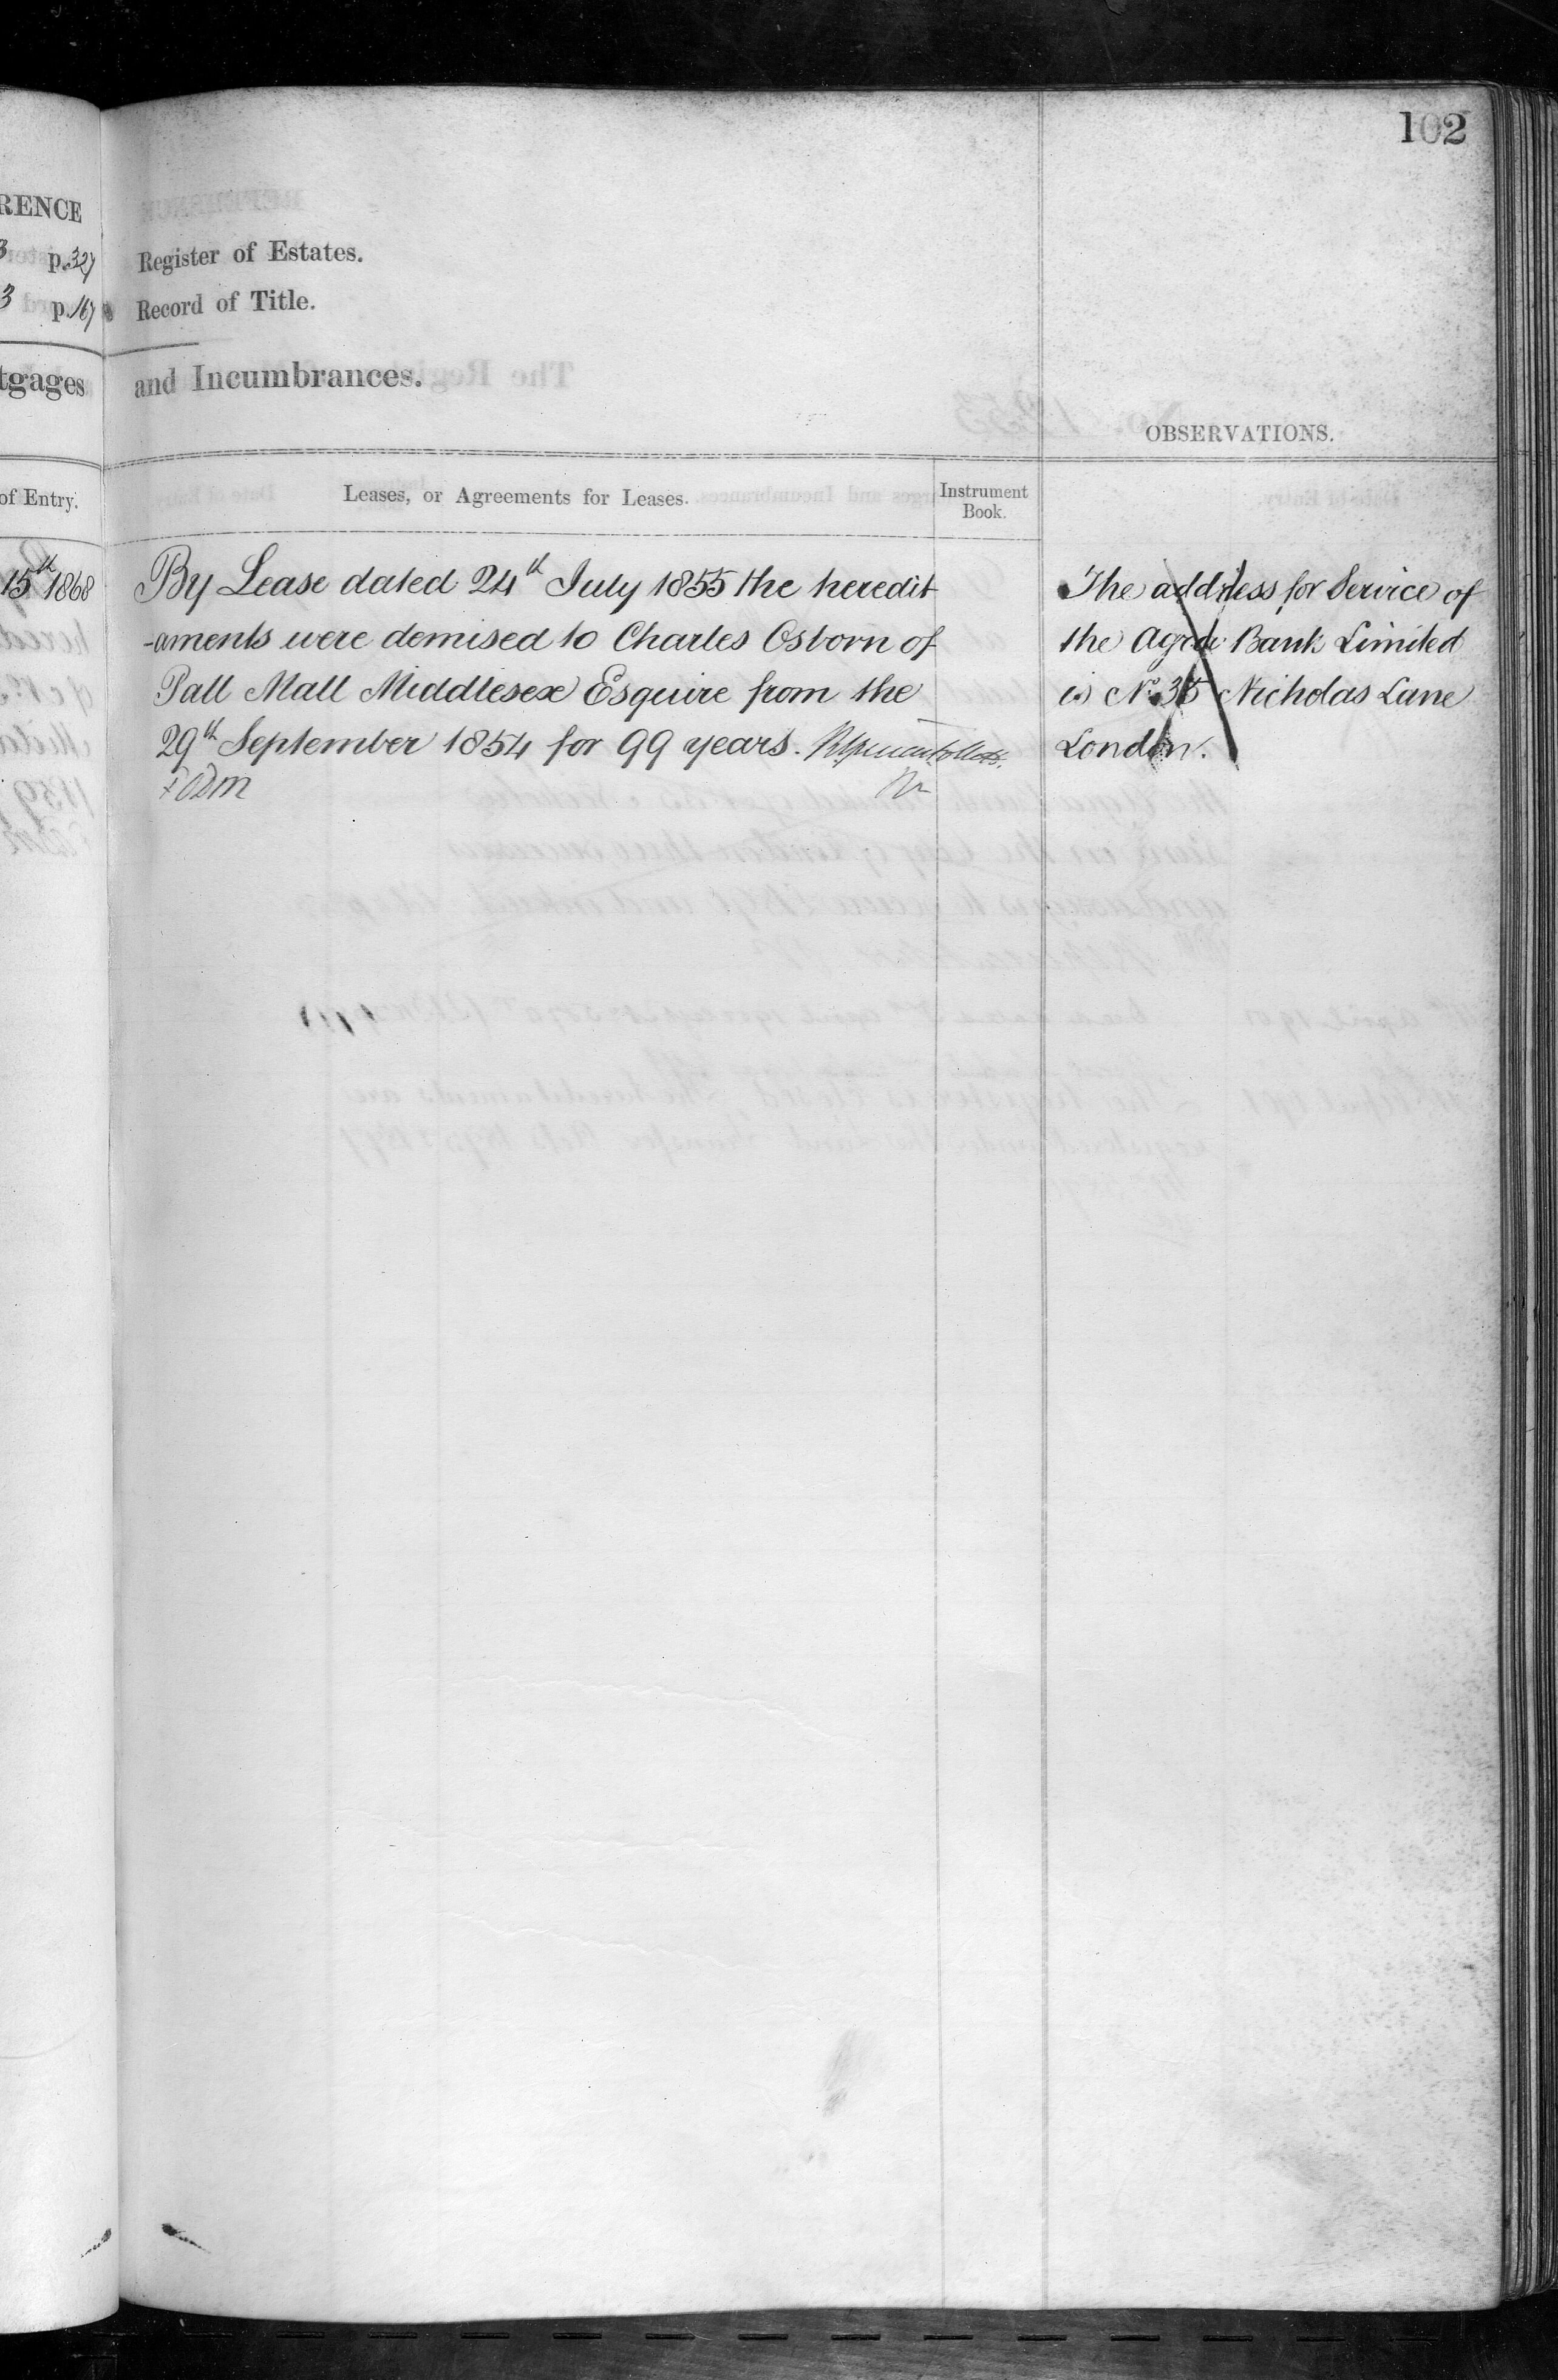 102
RENCE
p. 327
3 p. 167
Register of Estates.
Record of Title.
tgages
and Incumbrances.
OBSERVATIONS.
of Entry.
Leases, or Agreements for Leases.
Instrument
Book.
15th 1868
By Lease dated 24th July 1855 the heredit
-aments were demised to Charles Osborn of
Pall Mall Middlesex Esquire from the
29th September 1854 for 99 years.
The address for Service of
the Agra Bank Limited
is No. 35 Nicholas Lane
London.